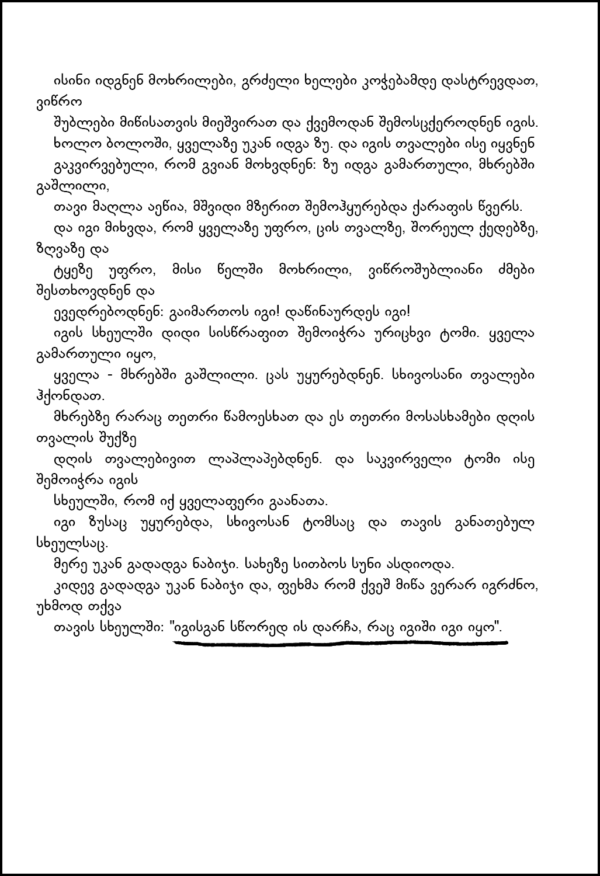 ისინი იდგნენ მოხრილები, გრძელი ხელები კოჭებამდე დასტრევდათ,
ვიწრო
შუბლები მიწისათვის მიეშვირათ და ქვემოდან შემოსცქეროდნენ იგის.
ხოლო ბოლოში, ყველაზე უკან იდგა ზუ. და იგის თვალები ისე იყვნენ
გაკვირვებული, რომ გვიან მოხვდნენ: ზუ იდგა გამართული, მხრებში
გაშლილი,
თავი მაღლა აეწია, მშვიდი მზერით შემოჰყურებდა ქარაფის წვერს.
და იგი მიხვდა, რომ ყველაზე უფრო, ცის თვალზე, შორეულ ქედებზე,
ზღვაზე და
ტყეზე უფრო, მისი წელში მოხრილი, ვიწროშუბლიანი ძმები
შესთხოვდნენ და
ევედრებოდნენ: გაიმართოს იგი! დაწინაურდეს იგი!
იგის სხეულში დიდი სისწრაფით შემოიჭრა ურიცხვი ტომი. ყველა
გამართული იყო,
ყველა - მხრებში გაშლილი. ცას უყურებდნენ. სხივოსანი თვალები
ჰქონდათ.
მხრებზე რარაც თეთრი წამოესხათ და ეს თეთრი მოსასხამები დღის
თვალის შუქზე
დღის თვალებივით ლაპლაპებდნენ. და საკვირველი ტომი ისე
შემოიჭრა იგის
სხეულში, რომ იქ ყველაფერი გაანათა.
იგი ზუსაც უყურებდა, სხივოსან ტომსაც და თავის განათებულ
სხეულსაც.
მერე უკან გადადგა ნაბიჯი. სახეზე სითბოს სუნი ასდიოდა.
კიდევ გადადგა უკან ნაბიჯი და, ფეხმა რომ ქვეშ მიწა ვერარ იგრძნო,
უხმოდ თქვა
თავის სხეულში: "იგისგან სწორედ ის დარჩა, რაც იგიში იგი იყო".